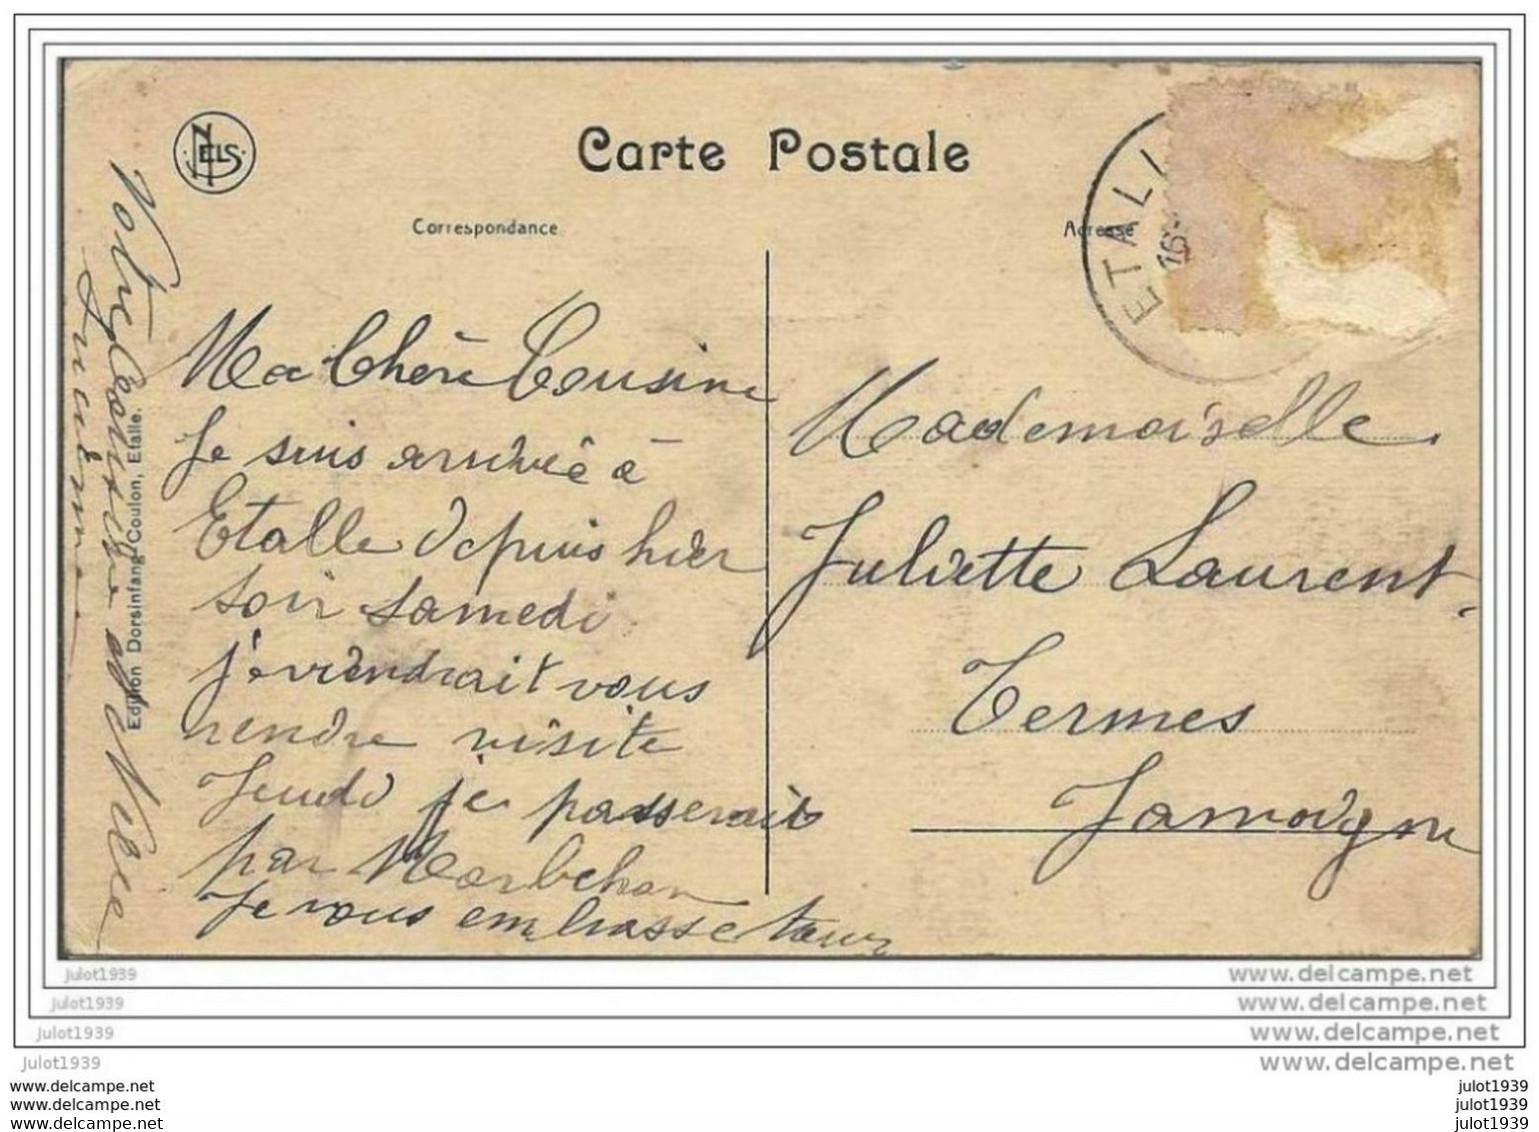 NELS
Carte Postale
Correspondance
Adresse
ETALL
16
Ma Chère Cousine
Je suis arrivée à
Etalle depuis hier
soir samedi
je viendrait vous
rendre visite
Jeudi je passerait
par Marbehan
Je vous embrasse tous
Votre Cousine et Nièce
Edition Dorsinfang-Coulon, Etalle.
Mademoiselle
Juliette Laurent
Termes
Jamoigne
julot1939
www.delcampe.net
julot1939
www.delcampe.net
julot1939
www.delcampe.net
julot1939
www.delcampe.net
www.delcampe.net
julot1939
www.delcampe.net
julot1939
www.delcampe.net
julot1939